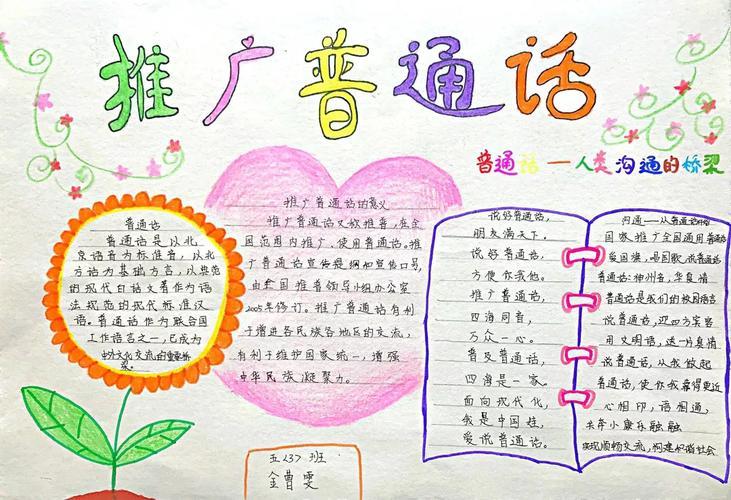 推广普通话
普通话—人类沟通的桥梁
普通话
普通话是以北
京语音为标准音，以北
方话为基础方言，以典范
的现代白话文著作为语
法规范的现代标准汉
语。普通话作为联合国
工作语言之一，已成为
中外文化交流的重要桥
梁。
推广普通话的意义
推广普通话又称推普，在全
国范围内推广、使用普通话。推
广普通话宣传是纲和宣传口号，
由全国推普领导小组办公室
2005年修订。推广普通话有利
于增进各民族各地区的交流，
有利于维护国家统一，增强
中华民族凝聚力。
说好普通话，
朋友满天下。
说好普通话，
方便你我他。
推广普通话，
四海同音，
万众一心。
普及普通话，
四海是一家。
面向现代化，
我是中国娃，
爱说普通话。
沟通——从普通话开始
国家推广全国通用普通话
爱国旗，唱国歌，说普通话
普通话：神州音，华夏情
普通话是我们的校园语言
说普通话，迎四方宾客
用文明语，送一片真情
说普通话，从我做起
普通话，使你我靠得更近
心相印，语相通，
共奔小康乐融融
实现顺畅交流，构建和谐社会
五（3）班
金曹雯